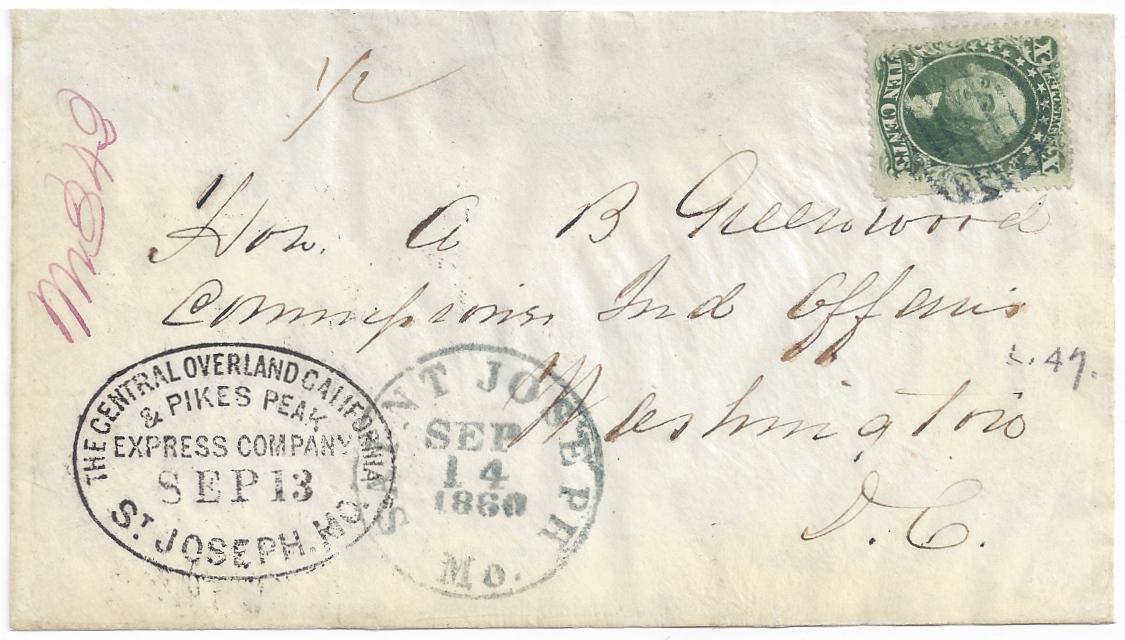 1/2
X U.S. POSTAGE X
TEN CENTS
Hon. A B Greenwood
Commissioner Ind Affairs
Washington
D. C.
49.
THE CENTRAL OVERLAND CALIFORNIA
& PIKES PEAK
EXPRESS COMPANY
SEP 13
ST. JOSEPH. MO.
SAINT JOSEPH
SEP
14
1860
Mo.